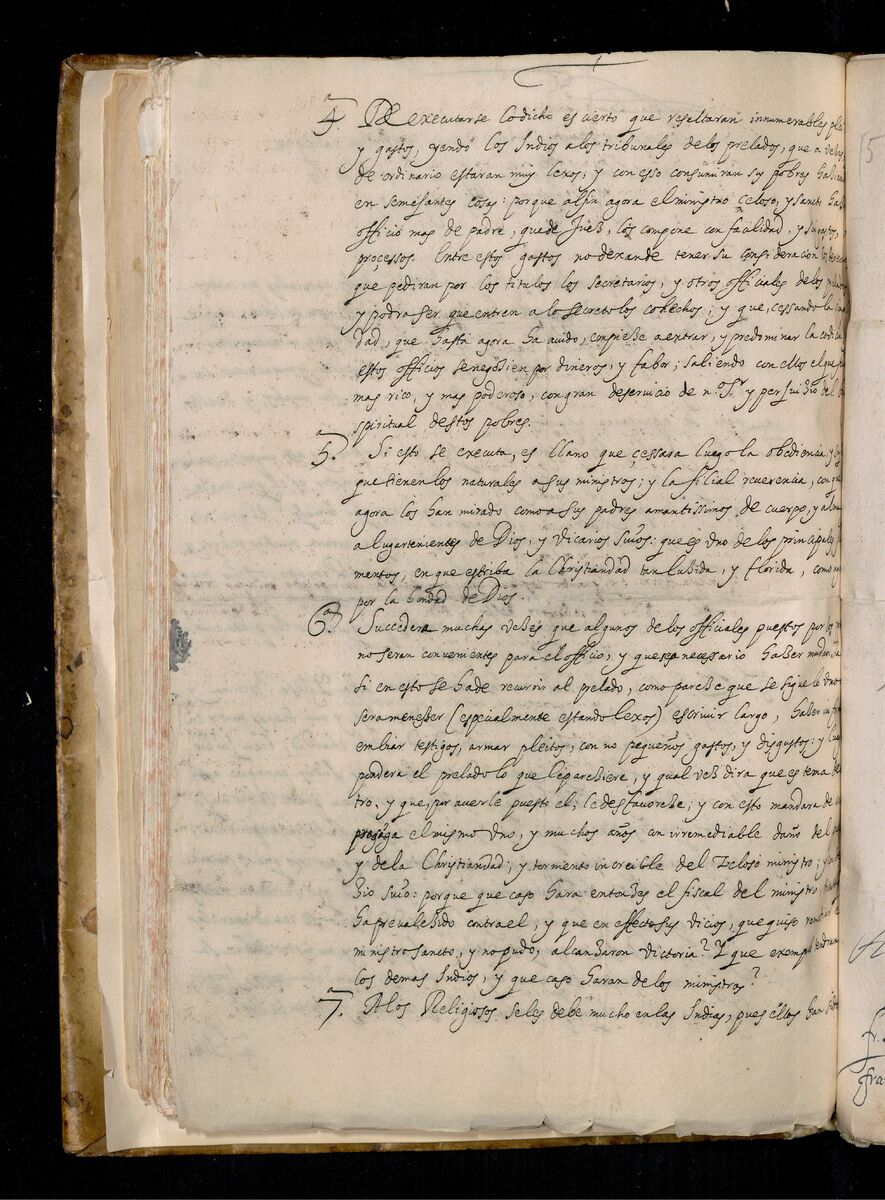 4. De executarse lo dicho es cierto que resultaran innumerables
y gastos, yendo los Indios a los tribunales de los prelados, que a
de ordinario estaran muy lexos; y con esso consumiran sus pobres
en semejantes cosas: porque al fin agora el ministro celoso, y sancto
officio mas de padre, que de Juez, los compone con facilidad, y sin gastos,
processos. Entre estos gastos no dexan de tener su consideracion los
que pediran por los titulos los secretarios, y otros officiales de los
y podra ser que entren a lo secreto los cohechos; y que, cessando la
dad, que hasta agora ha auido, empieze a entrar, y predominar la
estos officios se negozien por dineros, y fabor; saliendo con ellos el que
mas rico, y mas poderoso, con gran deservicio de n. Sr. y perjuizio del
spiritual destos pobres.
5. Si esto se executa, es llano que çessara luego la obediencia y
que tienen los naturales a sus ministros; y la filial reuerencia, con que
agora los han mirado como a sus padres amantissimos de cuerpo, y alma
a lugartenientes de Dios, y vicarios suios: que es vno de los principales
mentos, en que estriba la Christiandad tan luzida, y florida, como
por la bondad de Dios.
6. Succedera muchas vezes que algunos de los officiales puestos por los
no seran convenientes para el officio, y que sea necessario haber
si en esto se ha de recurrir al prelado, como pareze que se sigue
sera menester (espicialmente estando lexos) escriuir largo, haber
embiar testigos, armar pleitos, con no pequeños gastos, y disgustos: y
pondera el prelado lo que le pareziere, y qual vez dira que es tema
tro, y que, por auerle puesto el, le desfavoreze; y con esto mandara
prosiga el mismo vno, y muchos años con irremediable daño del
y de la Christiandad; y tormento increible del zeloso ministro; y
zio suio: porque que caso hara entonzes el fiscal del ministro
ha prevalezido contra el, y que en effecto sus vicios, que quiso
ministro sancto, y no pudo, alcanzaron victoria? Y que exemplo tendran
los demas Indios, y que caso haran de los ministros?
7. A los Religiosos se les debe mucho en las Indias, pues ellos han